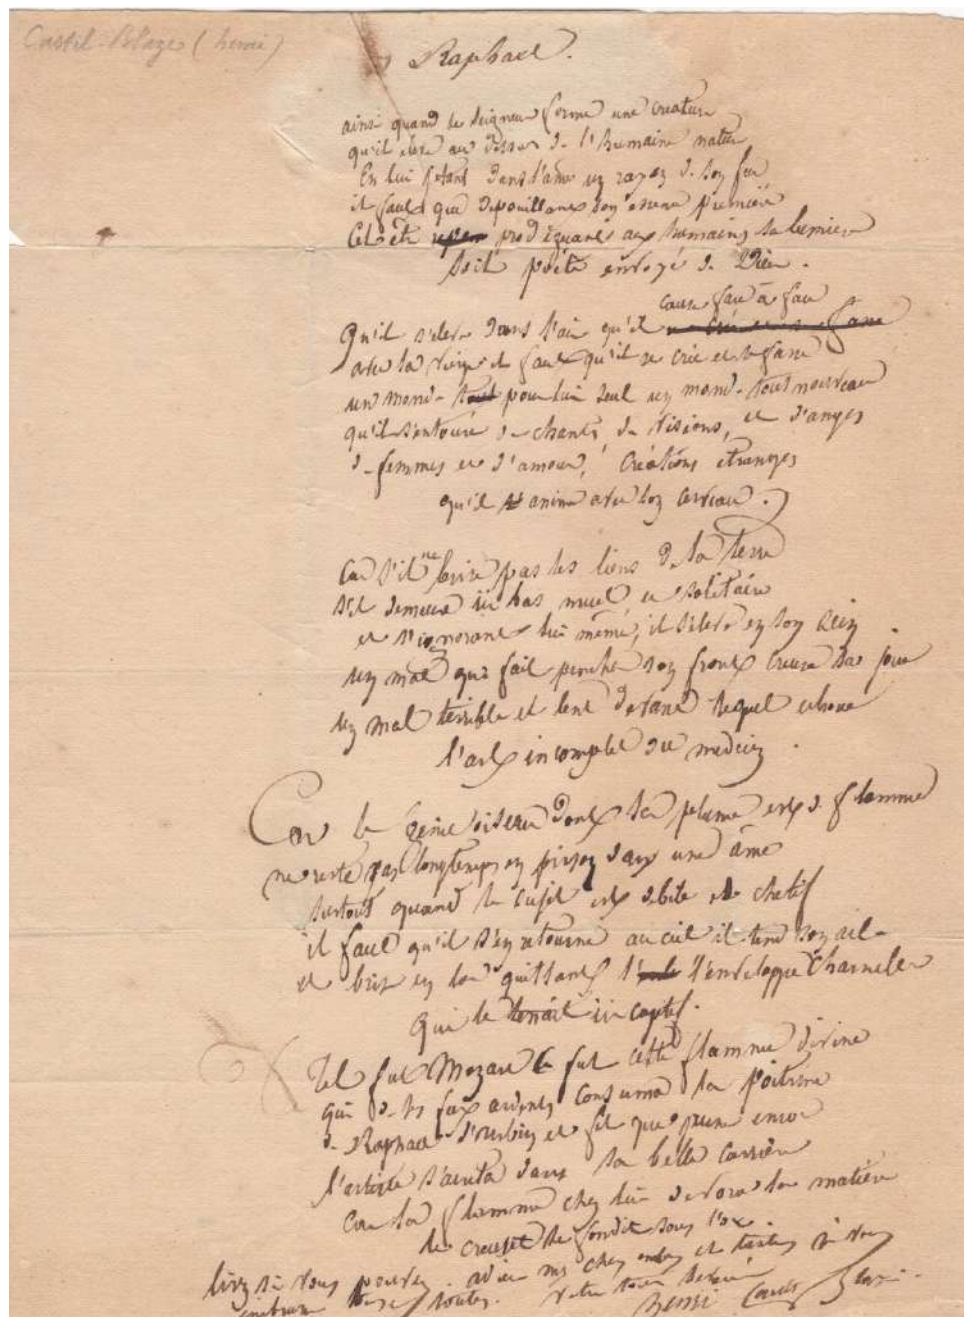 Castil-Blaze (henri)
Raphael.
ainsi quand le seigneur forme une creature
qu'il eleve au dessus de l'humaine nature
En lui jetant dans l'ame un rayon de son feu
il faut que depouillant son essence premiere
Cet être prodiguant aux humains sa lumiere
soit poëte envoyé de Dieu.
cause face à face
Qu'il s'eleve dans l'air qu'il
avec la vierge il faut qu'il se crée et se fasse
un monde pour lui seul un monde tout nouveau
qu'il s'entoure de chants, de visions, et d'anges
de femmes et d'amour, créations etranges
qu'il anime avec son cerveau.
Car s'il ne brise pas les liens de la terre
s'il demeure ici bas muet et solitaire
et s'ignorant lui même, il s'eleve en son sein
un mal qui fait pencher son front creuse sa joue
un mal terrible et lent devant lequel echoue
l'art incomplet du medecin.
Car le genie oiseau dont la plume est de flamme
ne reste pas longtemps en prison dans une âme
surtout quand le sujet est debile et chetif
il faut qu'il s'en retourne au ciel il tend son aile
et brise en la quittant l'enveloppe charnelle
Qui le tenait ici captif.
Tel fut Mozart ce fut cette flamme divine
qui de ses feux ardents consuma la poitrine
de Raphael d'urbin et fit que jeune encor
l'artiste s'arreta dans sa belle carriere
Car la flamme chez lui devora la matiere
le creuset se fondit sous l'or.
lisez si vous pouvez. adieu mes chers et à vous
toutes. votre devoué
Henri Castil Blaze.